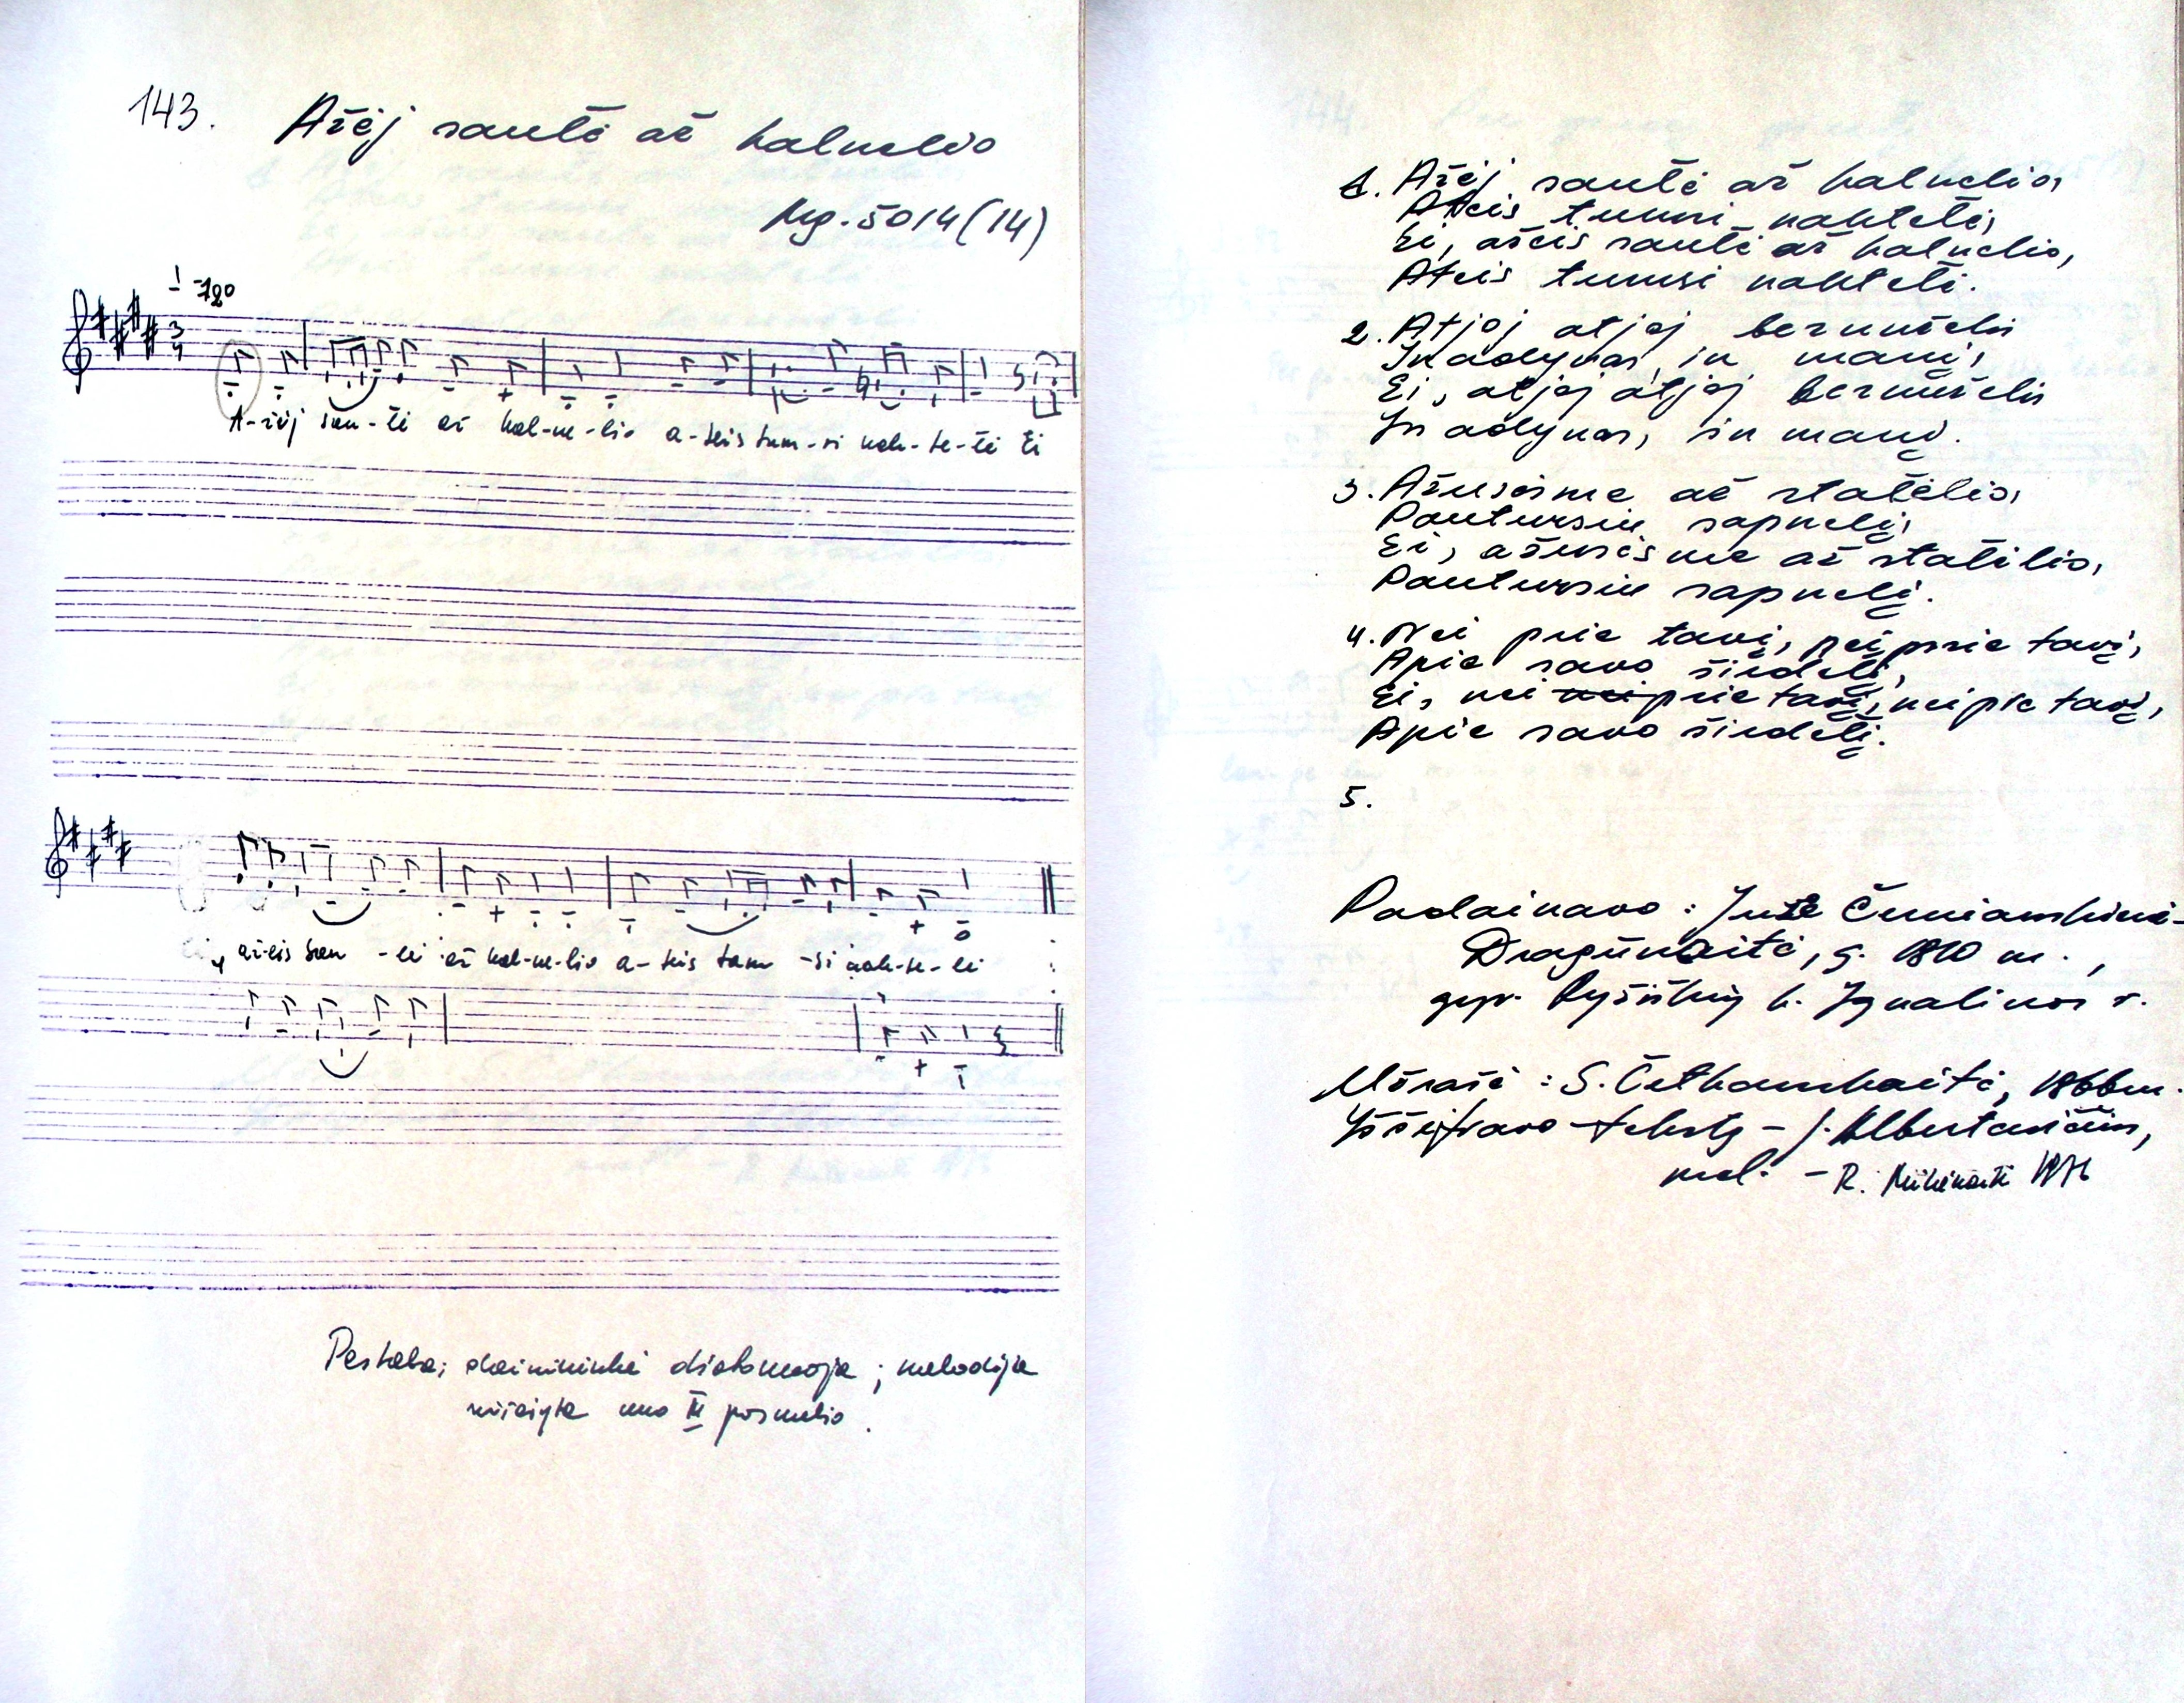 143. Ažėj saulė až kalnelio
Mg. 5014(14)
120
3
4
A-žėj sau-lė až kal-ne-lio a-teis tam-si nak-te-lė Ei
ei, až-eis sau -lė až kal-ne-lio a-teis tam -si nak-te-lė
Pastaba; dainininkė distonuoja; melodija
nužaigta nuo III posmelio.
1. Ažėj saulė až kalnelio,
Ateis tumsi naktelė,
Ei, ažeis saulė až kalnelio,
Ateis tumsi naktelė.
2. Atjoj atjoj bernužėlis
In adynas, in mani,
Ei, atjoj atjoj bernužėlis
In adynas, in mani.
3. Ažusėsme až stalėlio,
Pantursiu sapnelį,
Ei, ažusėsme až stalėlio,
Pantursiu sapnelį.
4. Nei prie tavi, nei prie tavi,
Apie savo širdelį,
Ei, nei nei prie tavi, nei pie tavi,
Apie savo širdelį.
5.
Padainavo : Juzė
Dragūnaitė, g. 1810 m.,
gyv. k. Ignalinos r.
Užrašė : S. 1966 m.
Iššifravo tekstą – J.
mel. – R. 1976